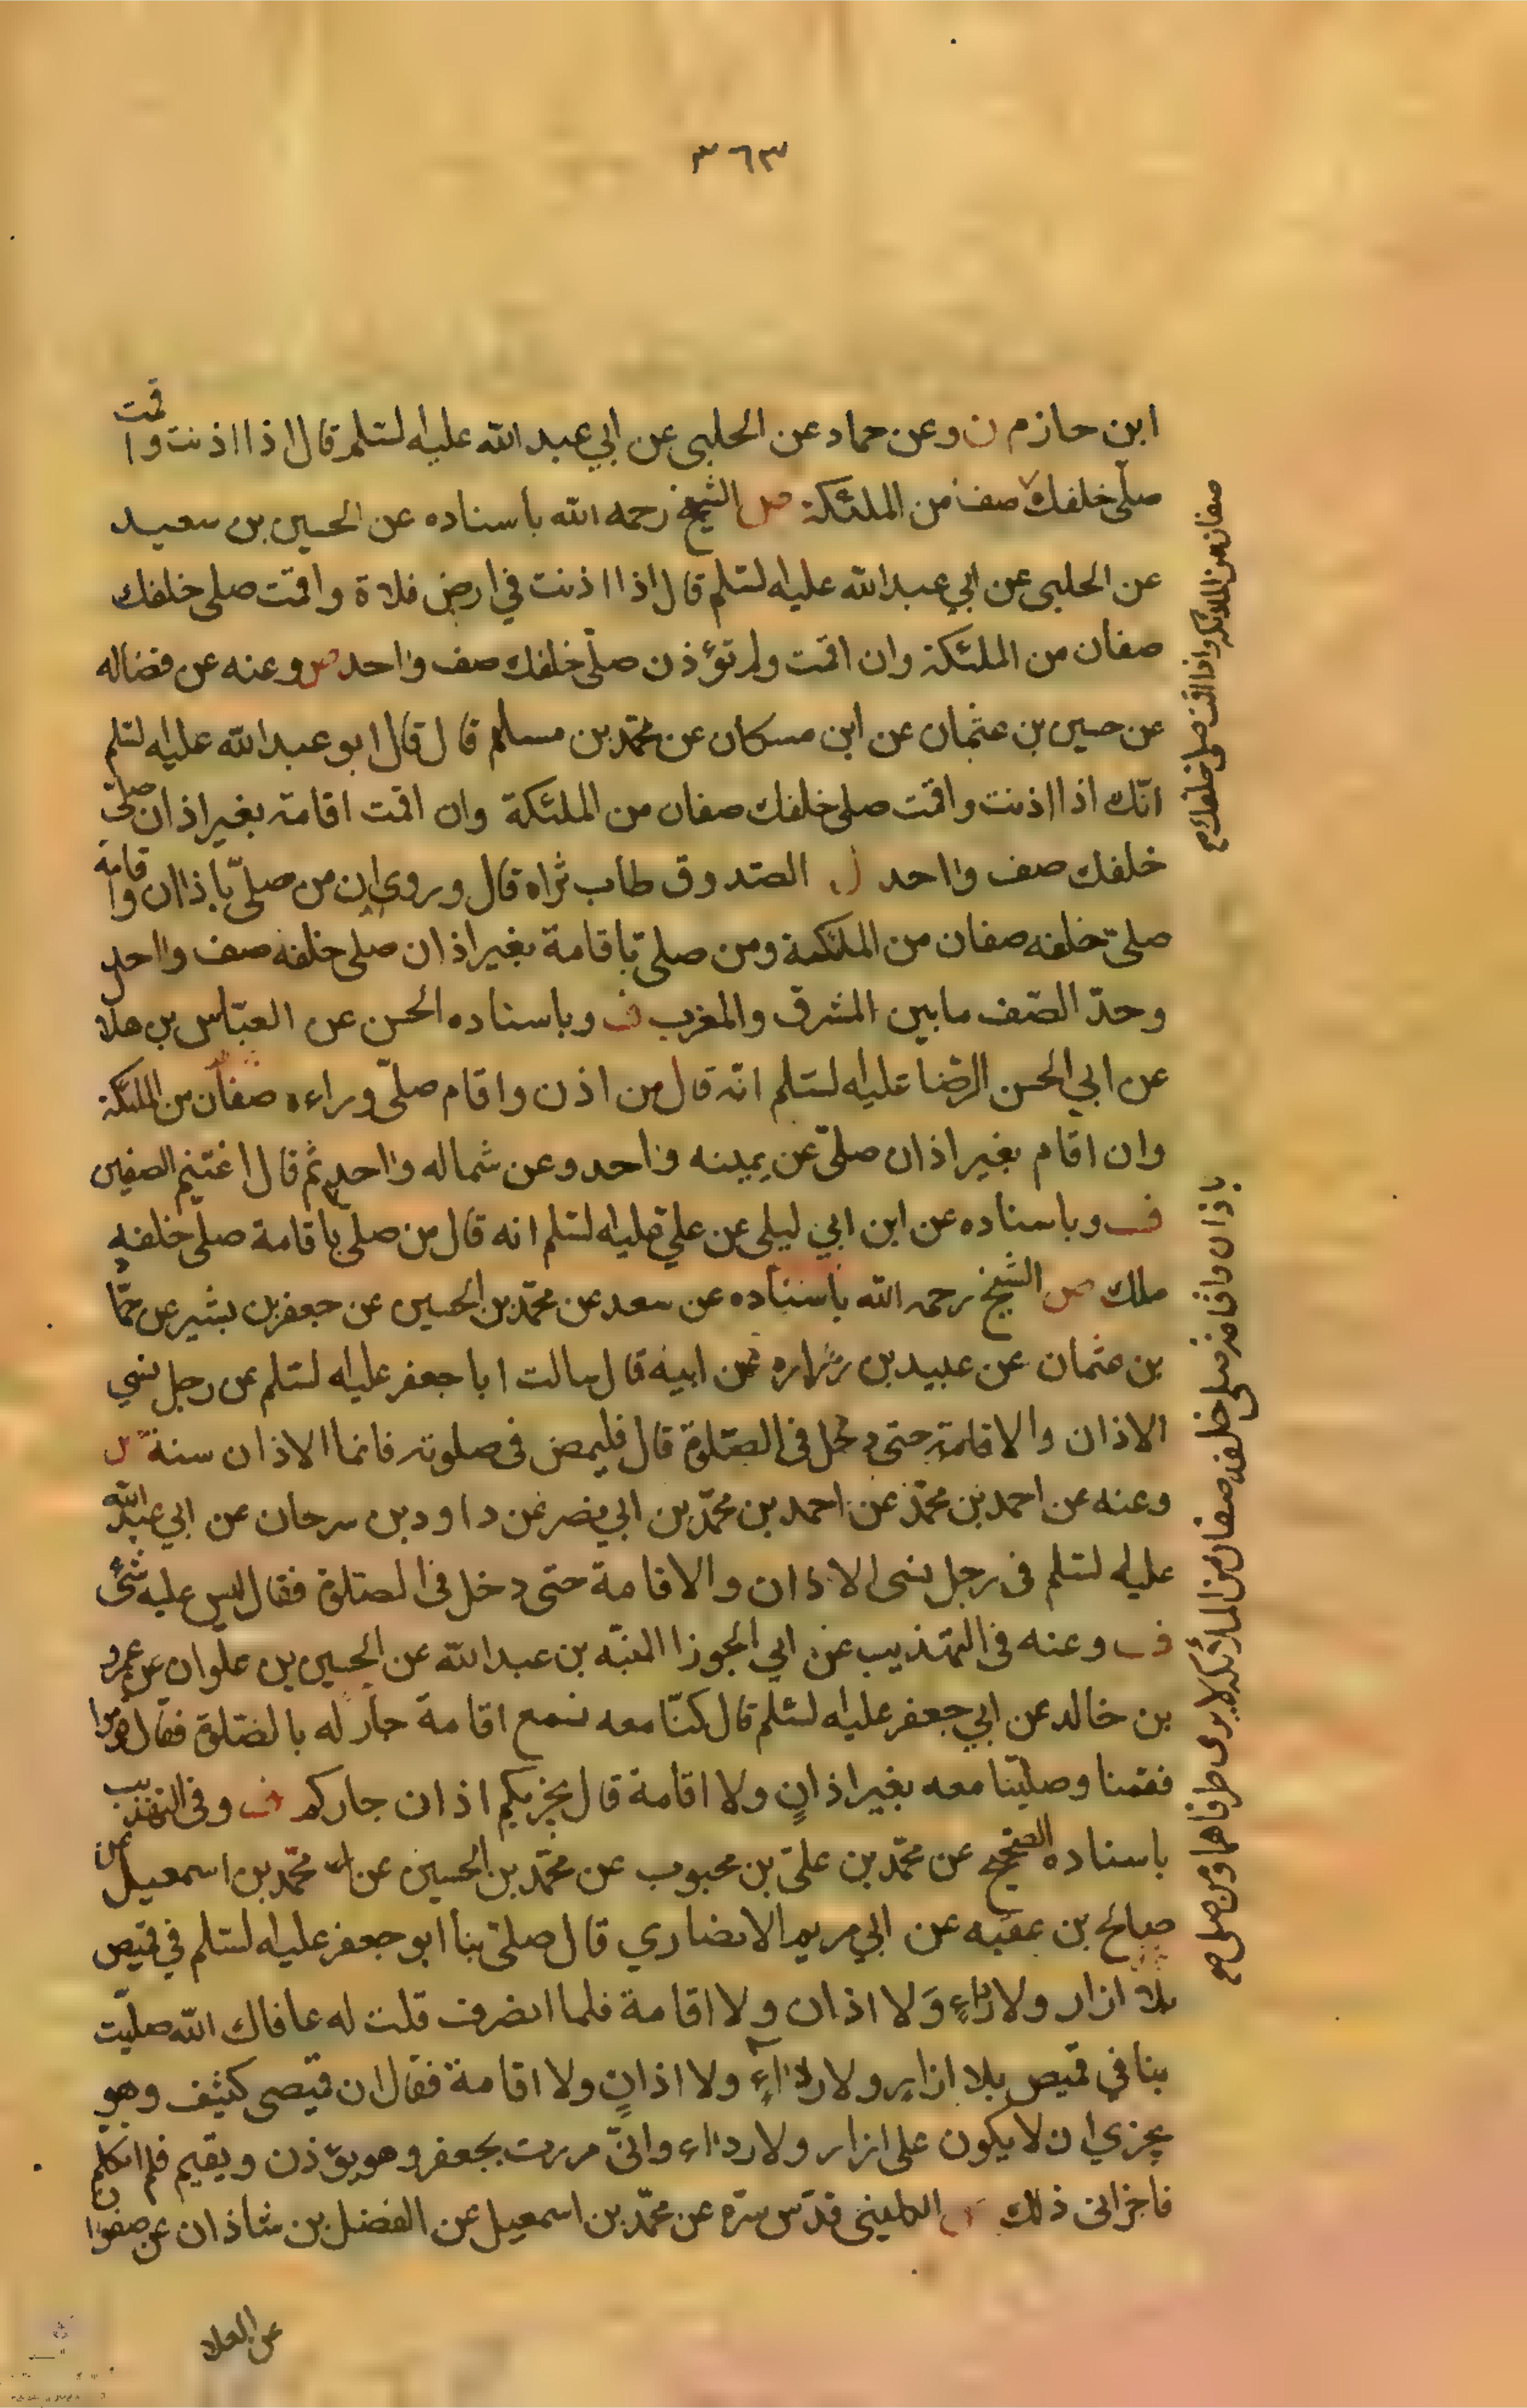 ٣٦٣
ابن حازم ن وعن حماد عن الحلبى عن ابي عبد الله عليه لسّلم قال اذا اذنت واقمت
صلّى خلفك صف من الملئكة ص الشيخ رحمه الله باسناده عن الحسين بن سعيد
عن الحلبى عن ابي عبد الله عليه لسّلم قال اذا اذنت في ارض فلاة واقمت صلى خلفك
صفان من الملئكة وان اقمت ولم تؤذن صلّى خلفك صف واحد ص وعنه عن فضاله
عن حسين بن عثمان عن ابن مسكان عن محمّد بن مسلم قال قال ابو عبد الله عليه لسّلم
انّك اذا اذنت واقمت صلى خلفك صفان من الملئكة وان اقمت اقامة بغير اذان صلّى
خلفك صف واحد ل الصّدوق طاب ثراه قال وروى ان من صلّى باذان واقامة
صلىّ خلفه صفان من الملئكة ومن صلى باقامة بغير اذان صلى خلفه صف واحد
وحدّ الصّف مابين المشرق والمغرب ف وباسناده الحسن عن العبّاس بن هلال
عن ابي الحسن الرّضا عليه لسّلم انّه قال من اذن واقام صلىّ وراءه صفان من الملئكة
وان اقام بغير اذان صلىّ عن يمينه واحد وعن شماله واحد ثم قال اغتنم الصفين
ف وباسناده عن ابن ابي ليلى عن علي عليه لسّلم انه قال من صلى باقامة صلى خلفه
ملك ص الشيخ رحمه الله باسناده عن سعد عن محمّد بن الحسين عن جعفر بن بشير عن حمّاد
بن عثمان عن عبيد بن زراره عن ابيه قال سالت ابا جعفر عليه لسّلم عن رجل نسي
الاذان والاقامة حتى دخل فى الصّلوة قال فليمض فى صلوته فانما الاذان سنة ل
وعنه عن احمد بن محمّد عن احمد بن محمّد بن ابي نصر عن داود بن سرحان عن ابي عبد الله
عليه لسّلم فى رجل نسى الاذان والاقامة حتى دخل فى الصّلوة فقال ليس عليه شئ
ف وعنه فى التهذيب عن ابي الجوزا المنبّه بن عبد الله عن الحسين بن علوان عن عمرو
بن خالد عن ابي جعفر عليه لسّلم قال كنّا معه نسمع اقامة جار له بالصّلوة فقال قوموا
فقمنا وصلّينا معه بغير اذانٍ ولا اقامة قال يجزيكم اذان جاركم ف وفى التهذيب
باسناده الصّحيح عن محمّد بن علىّ بن محبوب عن محمّد بن الحسين عن محمّد بن اسمعيل عن
صالح بن عقبه عن ابي مريم الانصاري قال صلىّ بنا ابو جعفر عليه لسّلم في قميص
بلا ازار ولا رداءٍ وَلا اذان ولا اقامة فلما انصرف قلت له عافاك الله صلّيت
بنا في قميص بلا ازار ولا رداءٍ ولا اذانٍ ولا اقامة فقال ان قميصى كثيف وهو
يجزي ان لا يكون على ازار ولا رداء وانّى مررت بجعفر وهو يؤذن ويقيم فلم اتكلم
فاجزانى ذلك الكلينى قدّس سرّه عن محمّد بن اسمعيل عن الفضل بن شاذان عن صفوان
عن العلا
صفان من الملائكه واذا اقمت صلى خلفك م
باذان واقامه صلى خلفه صفان من الملائكه لا يرى طرفاهما ومن صلى صح